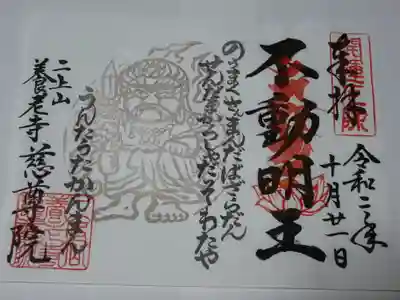 奉拝
令和二年
十月廿一日
不動明王
のうまくさまんだばざらだん
せんだまかろしゃだそわたや
うんたらたかんまん
二上山
養老寺 慈尊院